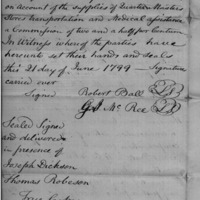 on Account of the supplies of Quarter Masters
Stores transportation and Medical
a Commission of two and a half per Centum
In Witness whereof the parties have
hereunto set their hands and seals
this 21 day of June 1794 — Signature
carried over
Signed Robert Ball
G. J. McRee
Sealed Signed
and delivered
in presence of
Joseph Dickson
Thomas Robeson